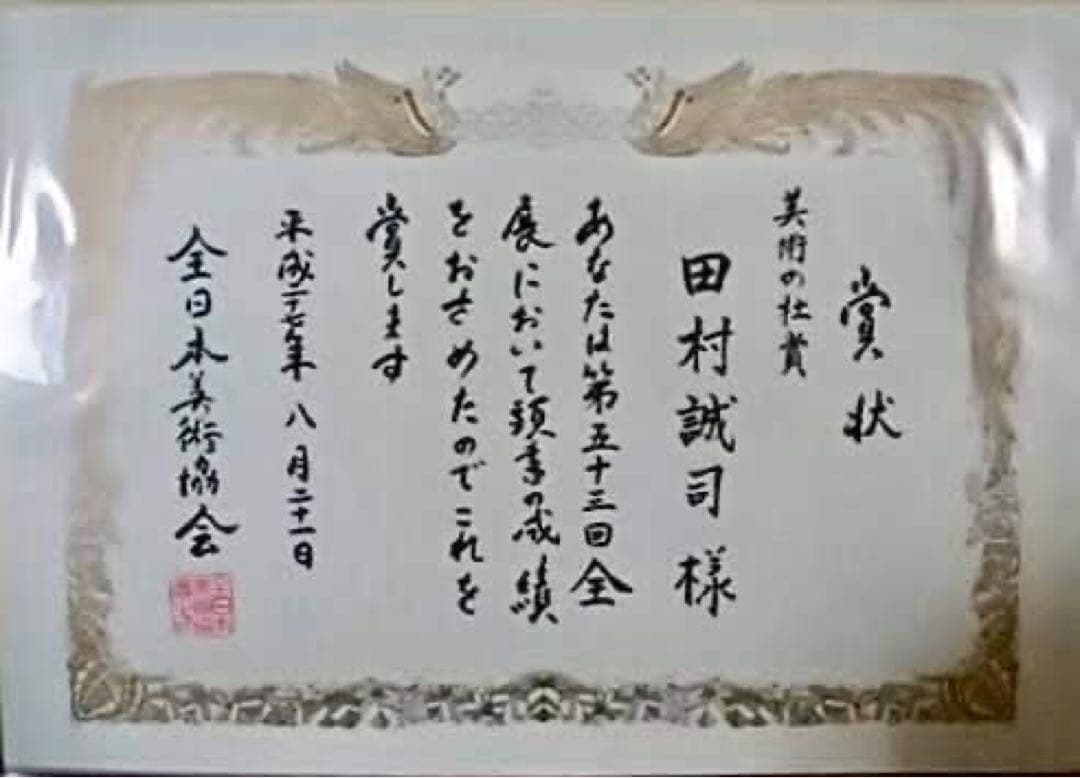 賞状
美術の杜賞
田村誠司様
あなたは第五十三回全
展において頭書の成績
をおさめたのでこれを
賞します
平成二十七年八月二十一日
全日本美術協会